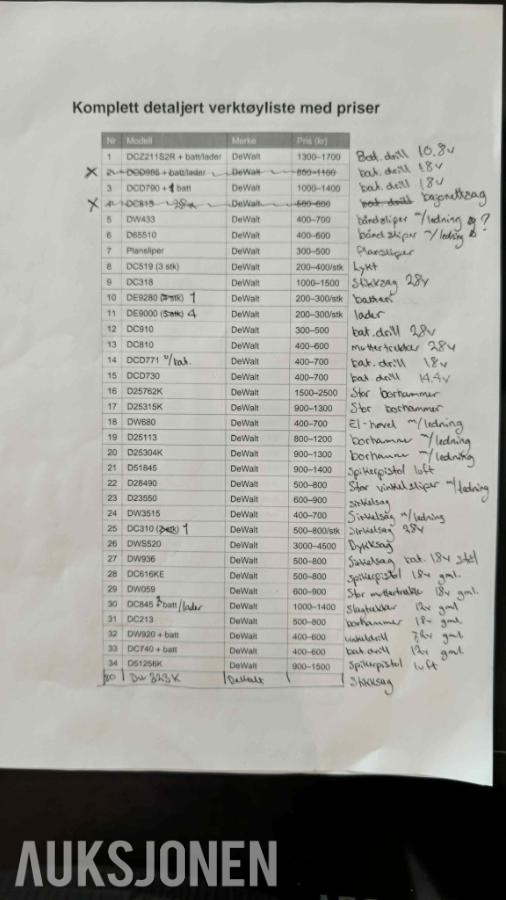 Komplett detaljert verktøyliste med priser
Nr Modell Merke Pris (kr)
1 DCZ211S2R + batt/lader DeWalt 1300–1700 Bat. drill 10.8v
X 2 DCD985 + batt/lader DeWalt 800–1100 bat. drill 18v
3 DCD790 + 1 batt DeWalt 1000–1400 bat. drill 18v
X 4 DC313 28v DeWalt 500–800 bat. drill bajonettsag
5 DW433 DeWalt 400–700 båndsliper m/ledning ?
6 D65510 DeWalt 400–600 båndsliper m/ledning
7 Plansliper DeWalt 300–500 Plansliper
8 DC519 (3 stk) DeWalt 200–400/stk Lykt
9 DC318 DeWalt 1000–1500 Stikksag 28v
10 DE9280 1 DeWalt 200–300/stk batteri
11 DE9000 4 DeWalt 200–300/stk lader
12 DC910 DeWalt 300–500 bat. drill 28v
13 DC810 DeWalt 400–600 muttertrekker 28v
14 DCD771 u/bat. DeWalt 400–700 bat. drill 18v
15 DCD730 DeWalt 400–700 bat drill 14.4v
16 D25762K DeWalt 1500–2500 Stor borhammer
17 D25315K DeWalt 900–1300 Stor borhammer
18 DW680 DeWalt 400–700 El-høvel m/ledning
19 D25113 DeWalt 800–1200 borhammer m/ledning
20 D25304K DeWalt 900–1300 borhammer m/ledning
21 D51845 DeWalt 900–1400 Spikerpistol luft
22 D28490 DeWalt 500–800 Stor vinkelsliper m/ledning
23 D23550 DeWalt 600–900 sirkelsag
24 DW3515 DeWalt 400–700 Sirkelsag m/ledning
25 DC310 1 DeWalt 500–800/stk Sirkelsag 28v
26 DWS520 DeWalt 3000–4500 Dykksag
27 DW936 DeWalt 500–800 Sirkelsag bat. 18v
28 DC616KE DeWalt 500–800 spikerpistol 18v gml.
29 DW059 DeWalt 600–900 Stor muttertrekker 18v gml.
30 DC845 batt/lader DeWalt 1000–1400 Slagtrekker 12v gml
31 DC213 DeWalt 500–800 borhammer 18v gml.
32 DW920 + batt DeWalt 400–600 vinkeldrill gml
33 DC740 + batt DeWalt 400–600 bat. drill 12v gml
34 D51256K DeWalt 900–1500 Spikerpistol luft
DW 323K DeWalt Stikksag
AUKSJONEN